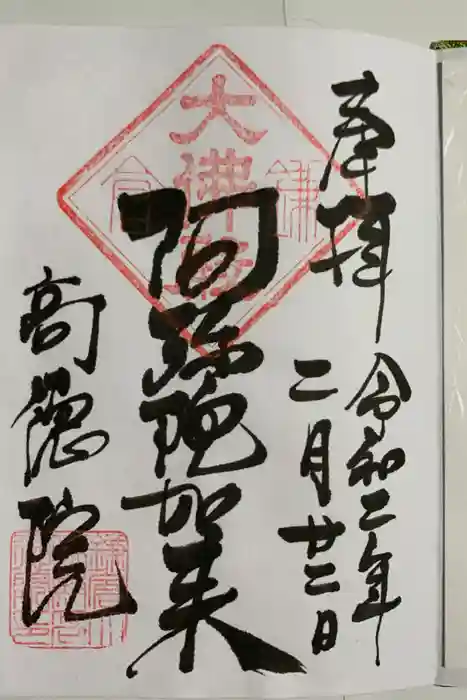 奉拝
令和二年
二月廿二日
阿弥陀如来
高徳院
大佛殿
鎌倉